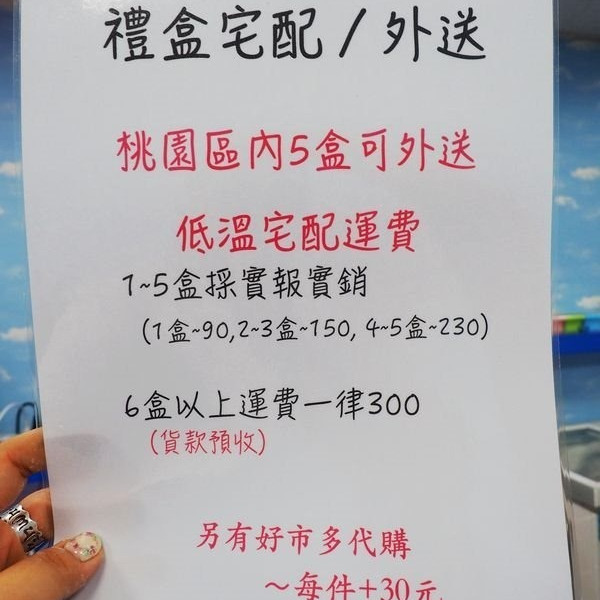 禮盒宅配/外送
桃園區內5盒可外送
低溫宅配運費
1~5盒採實報實銷
(1盒~90,2~3盒~150, 4~5盒~230)
6盒以上運費一律300
(貨款預收)
另有好市多代購
~每件+30元